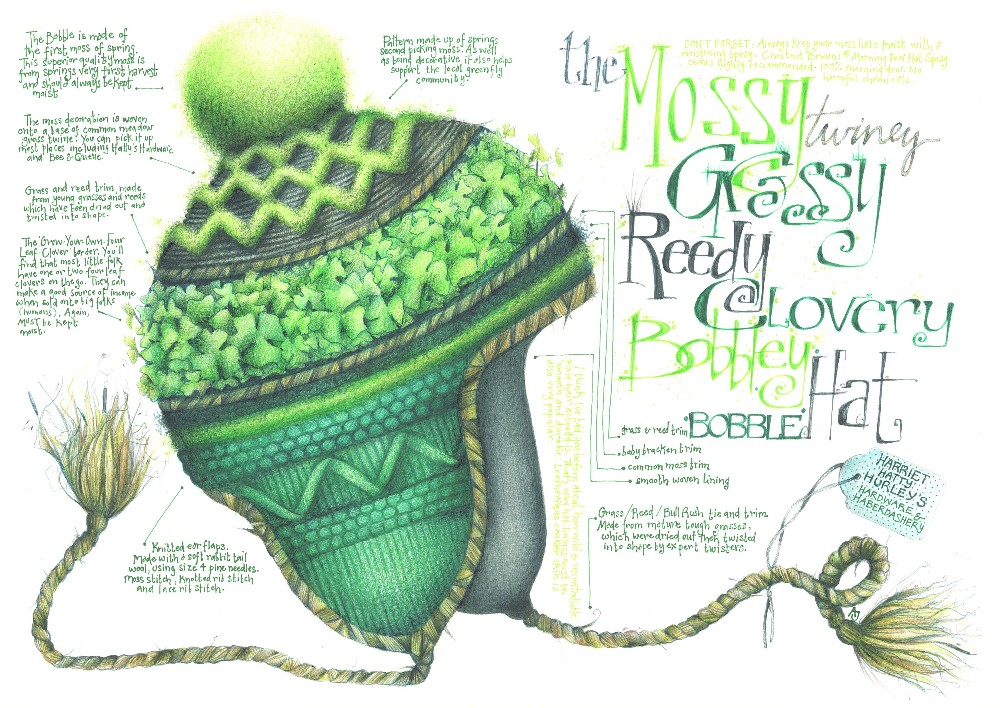 The Bobble is made of
the first moss of spring.
This superior quality moss is
from springs very first harvest
and should always be kept
moist
The moss decoration is woven
onto a base of common meadow
grass twine. You can pick it up
most places, including Hardware
and Bee & Queue.
Grass and reed trim, made
from young grasses and reeds
which have been dried out and
twisted into shape.
The 'Grow-Your-Own Four
Leaf Clover' border. You'll
find that most little folk
have one or two four leaf
clovers on the go. They can
make a good source of income
when sold onto big folks
(humans). Again,
MUST be kept
moist.
Pattern made up of springs
second picking moss. As well
as being decorative it also helps
support the local greenfly
community.
DON'T FORGET: Always keep your moss hats moist with a
moistening spray. Morning Dew Hat Spray
comes highly recommended. 100% morning dew. No
harmful chemicals.
the
Mossy
twiney
Grassy
Reedy
Clovery
Bobbley
Hat
'BOBBLE'
grass & reed trim
baby bracken trim
common moss trim
smooth woven lining
Grass/Reed/Bull Rush tie and trim
Made from mature tough grasses,
which were dried out then twisted
into shape by expert twisters.
HARRIET
HATTY
HURLEY'S
HARDWARE &
HABERDASHERY
Knitted ear flaps.
Made with a soft rabbit tail
wool, using size 4 pine needles.
Moss stitch, knotted rib stitch
and lace rib stitch.